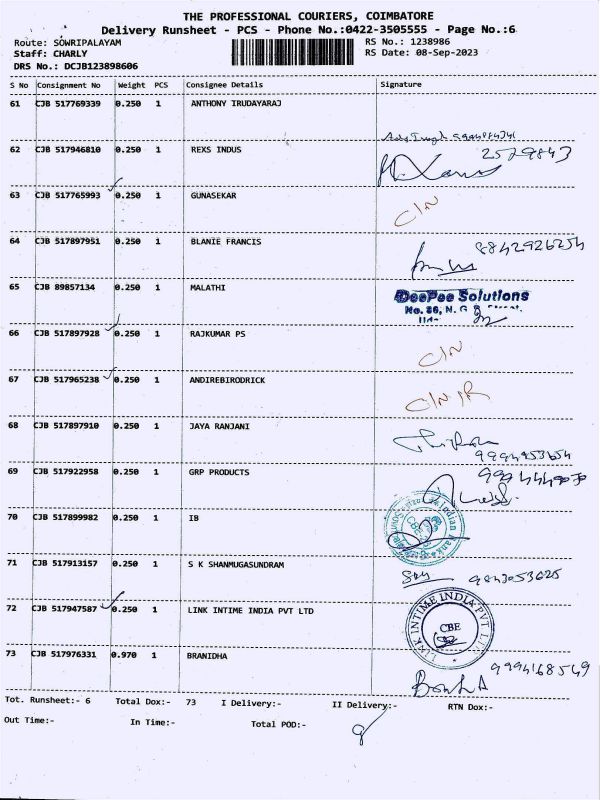 THE PROFESSIONAL COURIERS, COIMBATORE
Delivery Runsheet - PCS - Phone No.:0422-3505555 - Page No.:6
Route: SOWRIPALAYAM RS No.: 1238986
Staff: CHARLY RS Date: 08-Sep-2023
DRS No.: DCJB123898606
S No Consignment No Weight PCS Consignee Details Signature
61 CJB 517769339 0.250 1 ANTHONY IRUDAYARAJ
62 CJB 517946810 0.250 1 REXS INDUS 2579843
63 CJB 517765993 0.250 1 GUNASEKAR C/N
64 CJB 517897951 0.250 1 BLANIE FRANCIS 8842926254
65 CJB 89857134 0.250 1 MALATHI DeePee Solutions
No. 86, N. G
66 CJB 517897928 0.250 1 RAJKUMAR PS C/N
67 CJB 517965238 0.250 1 ANDIREBIRODRICK C/N IR
68 CJB 517897910 0.250 1 JAYA RANJANI
9994953654
69 CJB 517922958 0.250 1 GRP PRODUCTS
70 CJB 517899982 0.250 1 IB Indian Bank
71 CJB 517913157 0.250 1 S K SHANMUGASUNDRAM
9843053625
72 CJB 517947587 0.250 1 LINK INTIME INDIA PVT LTD LINK INTIME INDIA PVT L
CBE
73 CJB 517976331 0.970 1 BRANIDHA 9994168549
Tot. Runsheet:- 6 Total Dox:- 73 I Delivery:- II Delivery:- RTN Dox:-
Out Time:- In Time:- Total POD:-